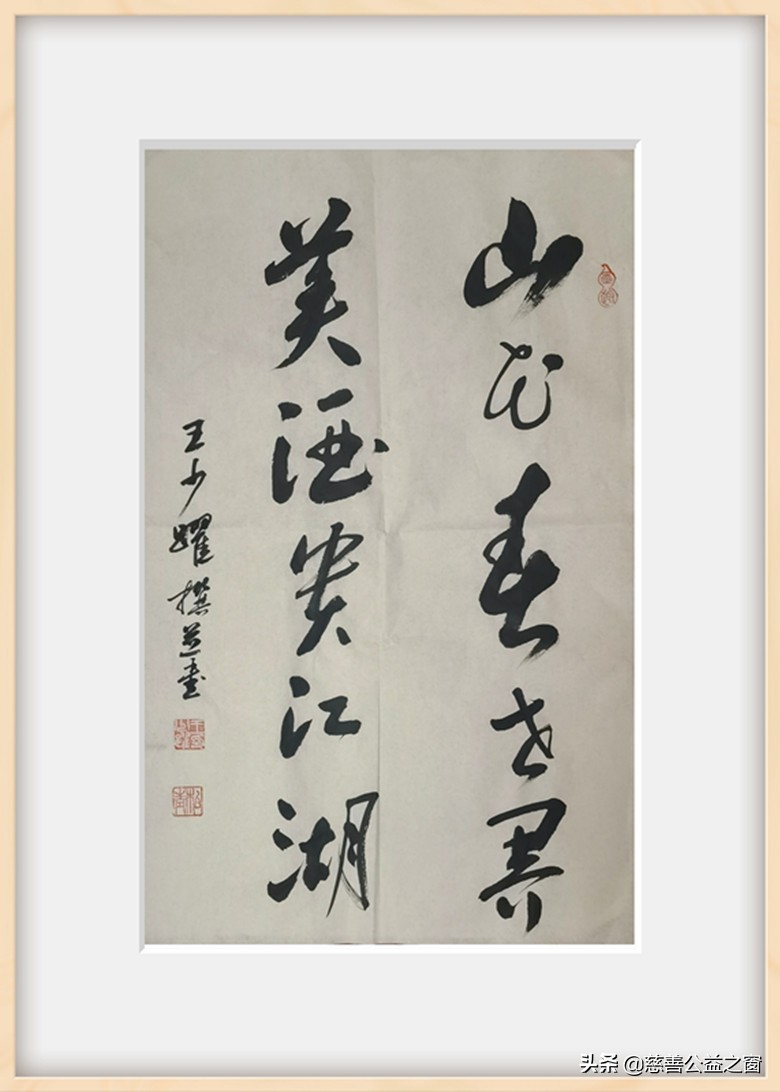 山花春世界
美酒贵江湖
王少跃撰并书
头条 @慈善公益之窗